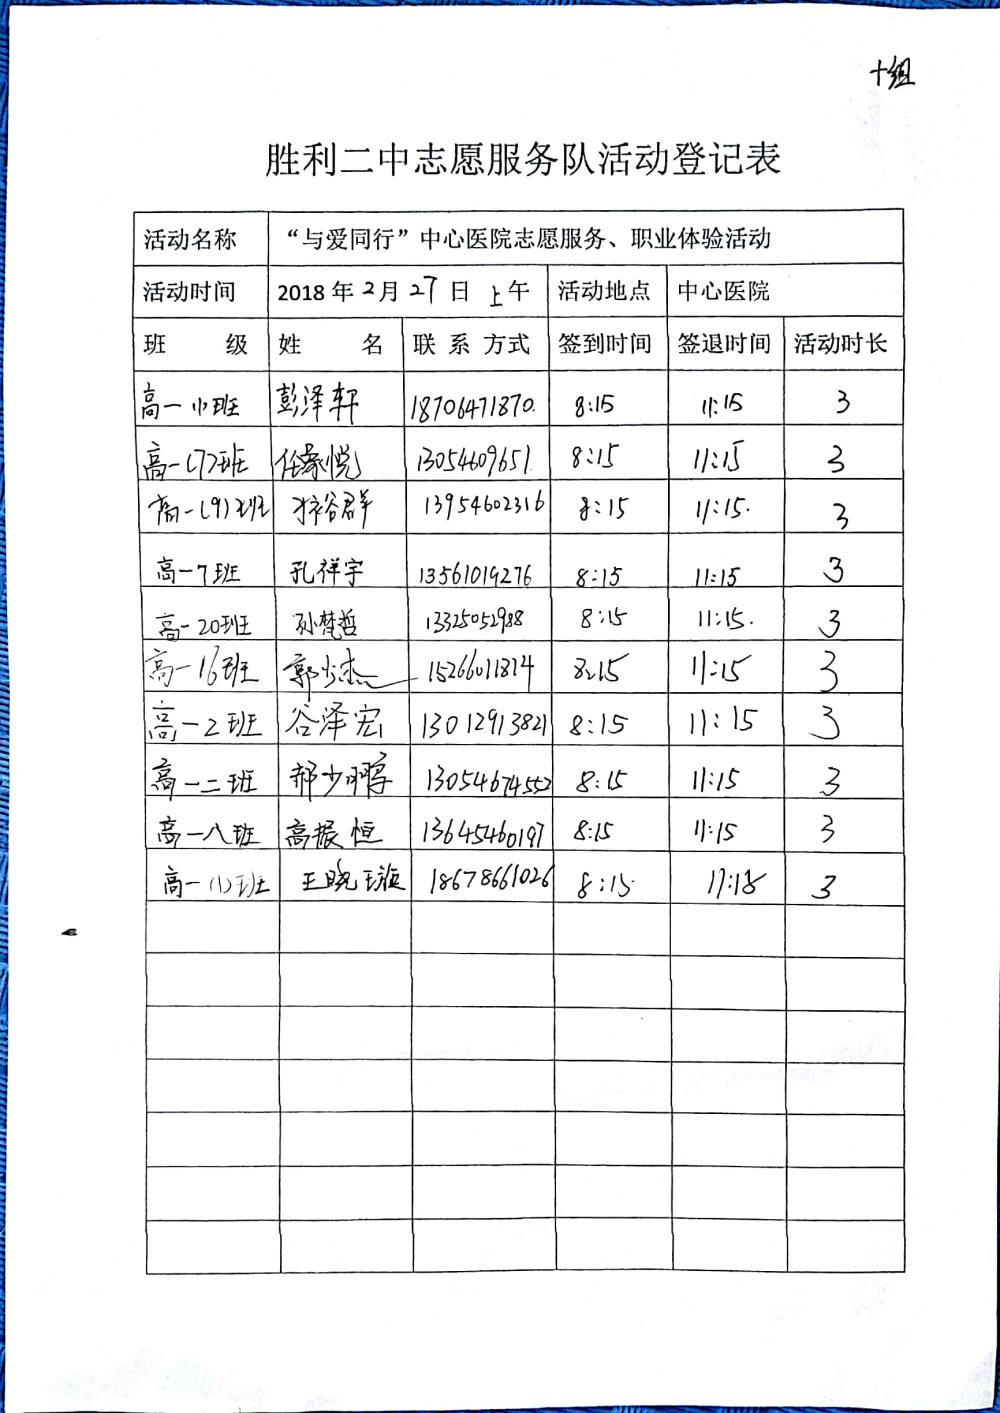 十组
胜利二中志愿服务队活动登记表
活动名称 “与爱同行”中心医院志愿服务、职业体验活动
活动时间 2018 年 2 月 27 日 上午 活动地点 中心医院
班 级 姓 名 联 系 方式 签到时间 签退时间 活动时长
高一 班 彭泽轩 18706471870. 8:15 11:15 3
高一(7)班 任豪悦 13054609651. 8:15 11:15 3
高一(9)班 谷群 13954602316 8:15 11:15. 3
高一7班 孔祥宇 13561019276 8:15 11:15 3
高一20班 孙梵哲 13325052988 8:15 11:15. 3
高一16班 郭少杰 15266011814 8:15 11:15 3
高一2班 谷泽宏 13012913821 8:15 11:15 3
高一二班 郝少鹏 13054674552 8:15 11:15 3
高一八班 高振恒 13645460197 8:15 11:15 3
高一(1)班 王晓璇 18678661026 8:15 11:15 3